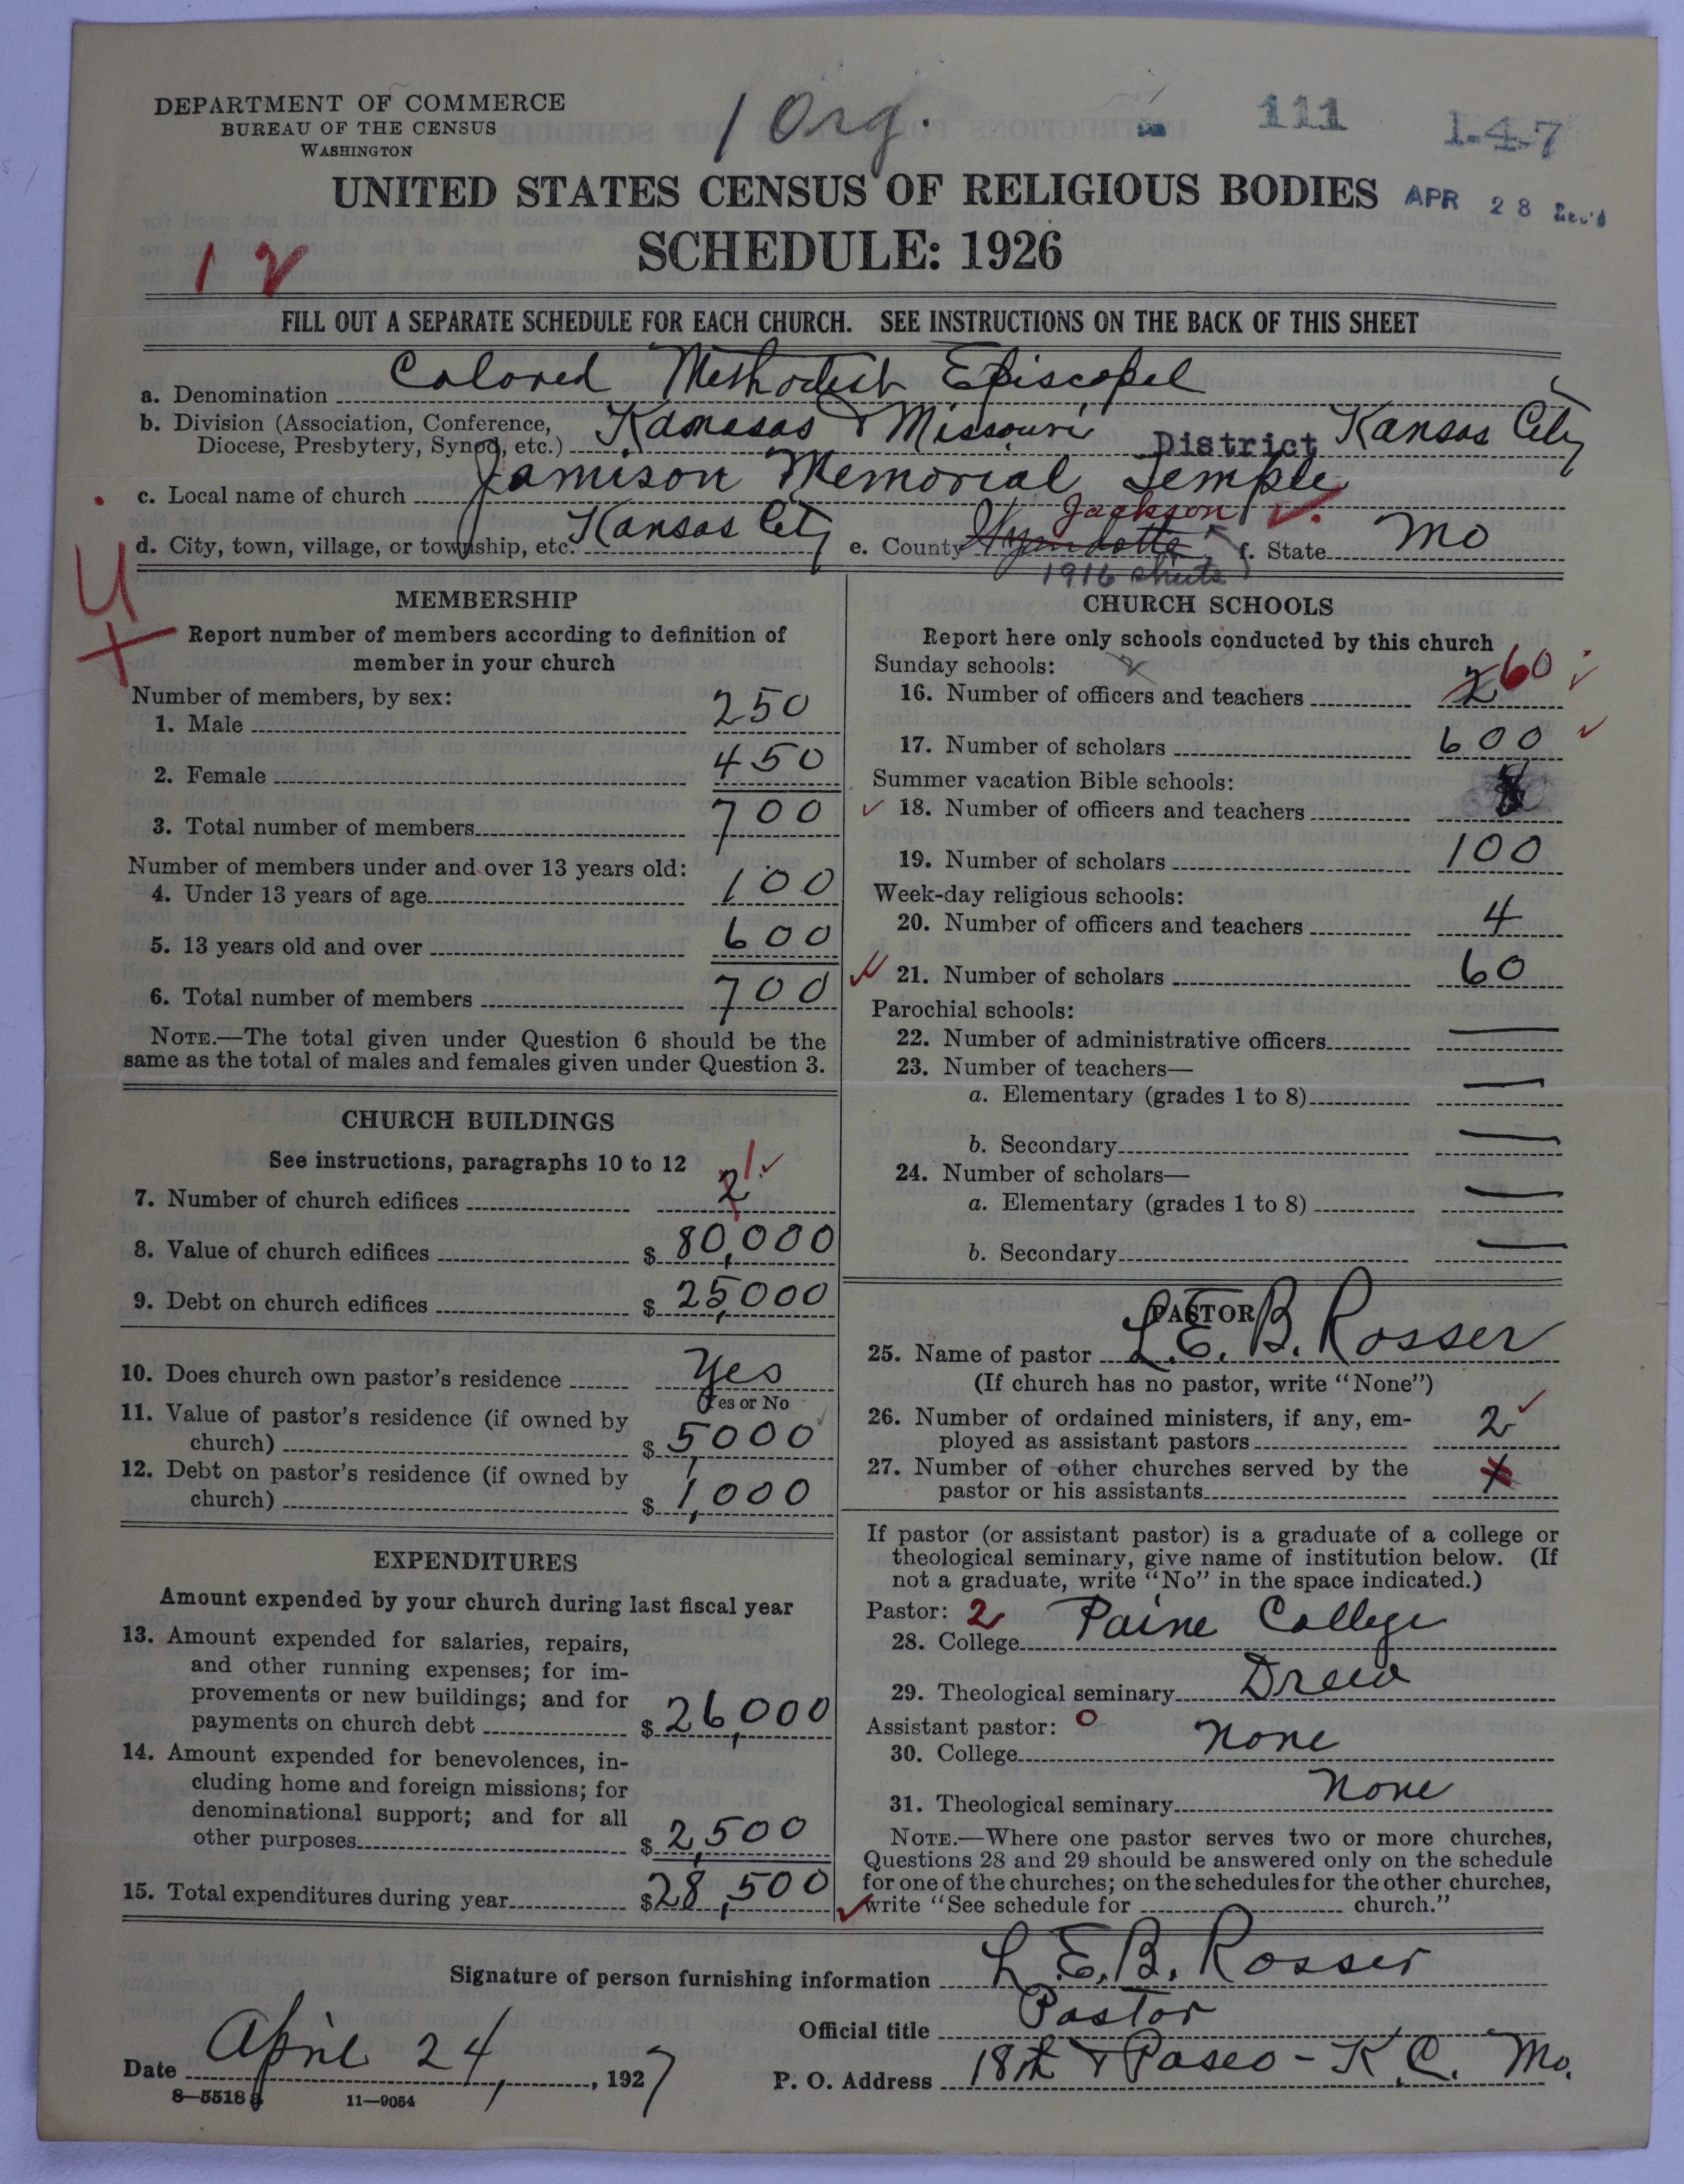 DEPARTMENT OF COMMERCE
BUREAU OF THE CENSUS
WASHINGTON
1 Org.
111
1-4-7
UNITED STATES CENSUS OF RELIGIOUS BODIES
APR 28 Rec'd
SCHEDULE: 1926
1 2
FILL OUT A SEPARATE SCHEDULE FOR EACH CHURCH. SEE INSTRUCTIONS ON THE BACK OF THIS SHEET
a. Denomination Colored Methodist Episcopel
b. Division (Association, Conference,
Diocese, Presbytery, Synod, etc.) Kansas & Missouri District Kansas City
c. Local name of church Jamison Memorial Temple
d. City, town, village, or township, etc. Kansas City e. County Wyandotte Jackson f. State Mo
1916
MEMBERSHIP
Report number of members according to definition of
member in your church
Number of members, by sex:
1. Male 250
2. Female 450
3. Total number of members 700
Number of members under and over 13 years old:
4. Under 13 years of age 100
5. 13 years old and over 600
6. Total number of members 700
NOTE.—The total given under Question 6 should be the
same as the total of males and females given under Question 3.
CHURCH BUILDINGS
See instructions, paragraphs 10 to 12
7. Number of church edifices 2 1
8. Value of church edifices $ 80,000
9. Debt on church edifices $ 25,000
10. Does church own pastor's residence Yes
Yes or No
11. Value of pastor's residence (if owned by
church) $ 5000
12. Debt on pastor's residence (if owned by
church) $ 1,000
EXPENDITURES
Amount expended by your church during last fiscal year
13. Amount expended for salaries, repairs,
and other running expenses; for im-
provements or new buildings; and for
payments on church debt $ 26,000
14. Amount expended for benevolences, in-
cluding home and foreign missions; for
denominational support; and for all
other purposes $ 2,500
15. Total expenditures during year $ 28,500
CHURCH SCHOOLS
Report here only schools conducted by this church
Sunday schools:
16. Number of officers and teachers 2 60
17. Number of scholars 600
Summer vacation Bible schools:
18. Number of officers and teachers
19. Number of scholars 100
Week-day religious schools:
20. Number of officers and teachers 4
21. Number of scholars 60
Parochial schools:
22. Number of administrative officers
23. Number of teachers—
a. Elementary (grades 1 to 8)
b. Secondary
24. Number of scholars—
a. Elementary (grades 1 to 8)
b. Secondary
PASTOR
25. Name of pastor L. E. B. Rosser
(If church has no pastor, write "None")
26. Number of ordained ministers, if any, em-
ployed as assistant pastors 2
27. Number of other churches served by the
pastor or his assistants
If pastor (or assistant pastor) is a graduate of a college or
theological seminary, give name of institution below. (If
not a graduate, write "No" in the space indicated.)
Pastor: 2
28. College Paine College
29. Theological seminary Drew
Assistant pastor: 0
30. College None
31. Theological seminary None
NOTE.—Where one pastor serves two or more churches,
Questions 28 and 29 should be answered only on the schedule
for one of the churches; on the schedules for the other churches,
write "See schedule for church."
Signature of person furnishing information L. E. B. Rosser
Official title Pastor
Date April 24, 1927
P. O. Address 18th & Paseo - K.C. Mo.
8—5518
11—9054